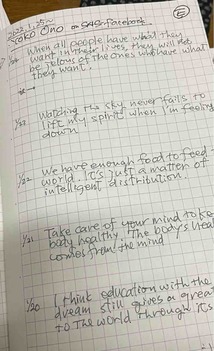 2022.1.25~
Yoko Ono on SNS facebook
E
1/24 When all people have what they
want in their lives, they will not
be jelous of the ones who have what
they want.
1/23 Watching the sky never fails to
lift my spirit when I'm feeling
down
1/22 We have enough food to feed
world. It's just a matter of
intelligent distribution.
1/21 Take care of your mind to ke
body healthy. The body's heal
comes from the mind
1/20 I think education with the
dream still gives a great
to the world through its